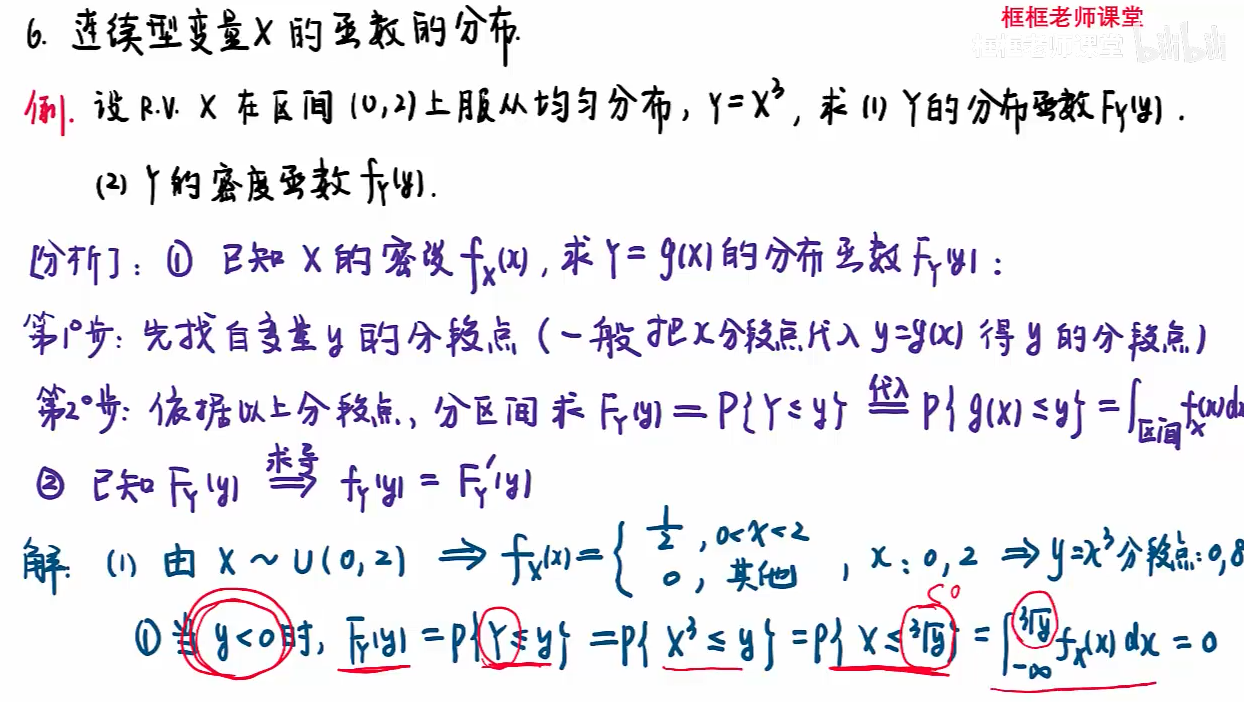 框框老师课堂
框框老师课堂 bilibili
6. 连续型变量X的函数的分布.
例. 设 R.V. X 在区间 (0,2) 上服从均匀分布, Y=X³, 求 (1) Y的分布函数 F_Y(y).
(2) Y的密度函数 f_Y(y).
[分析]: ① 已知 X 的密度 f_X(x), 求 Y=g(X) 的分布函数 F_Y(y):
第1°步: 先找自变量 y 的分段点 (一般把 x 分段点代入 y=g(x) 得 y 的分段点)
第2°步: 依据以上分段点, 分区间求 F_Y(y) = P{Y≤y} =代入= P{g(X)≤y} = ∫_区间 f_X(x)dx
② 已知 F_Y(y) =求导⇒ f_Y(y) = F_Y′(y)
解: (1) 由 X ~ U(0,2) ⇒ f_X(x) = { 1/2, 0<x<2 ; 0, 其他 , x: 0, 2 ⇒ y=x³ 分段点: 0, 8
≤0
① 当 y<0 时, F_Y(y) = P{Y≤y} = P{X³≤y} = P{X≤³√y} = ∫_{-∞}^{³√y} f_X(x)dx = 0